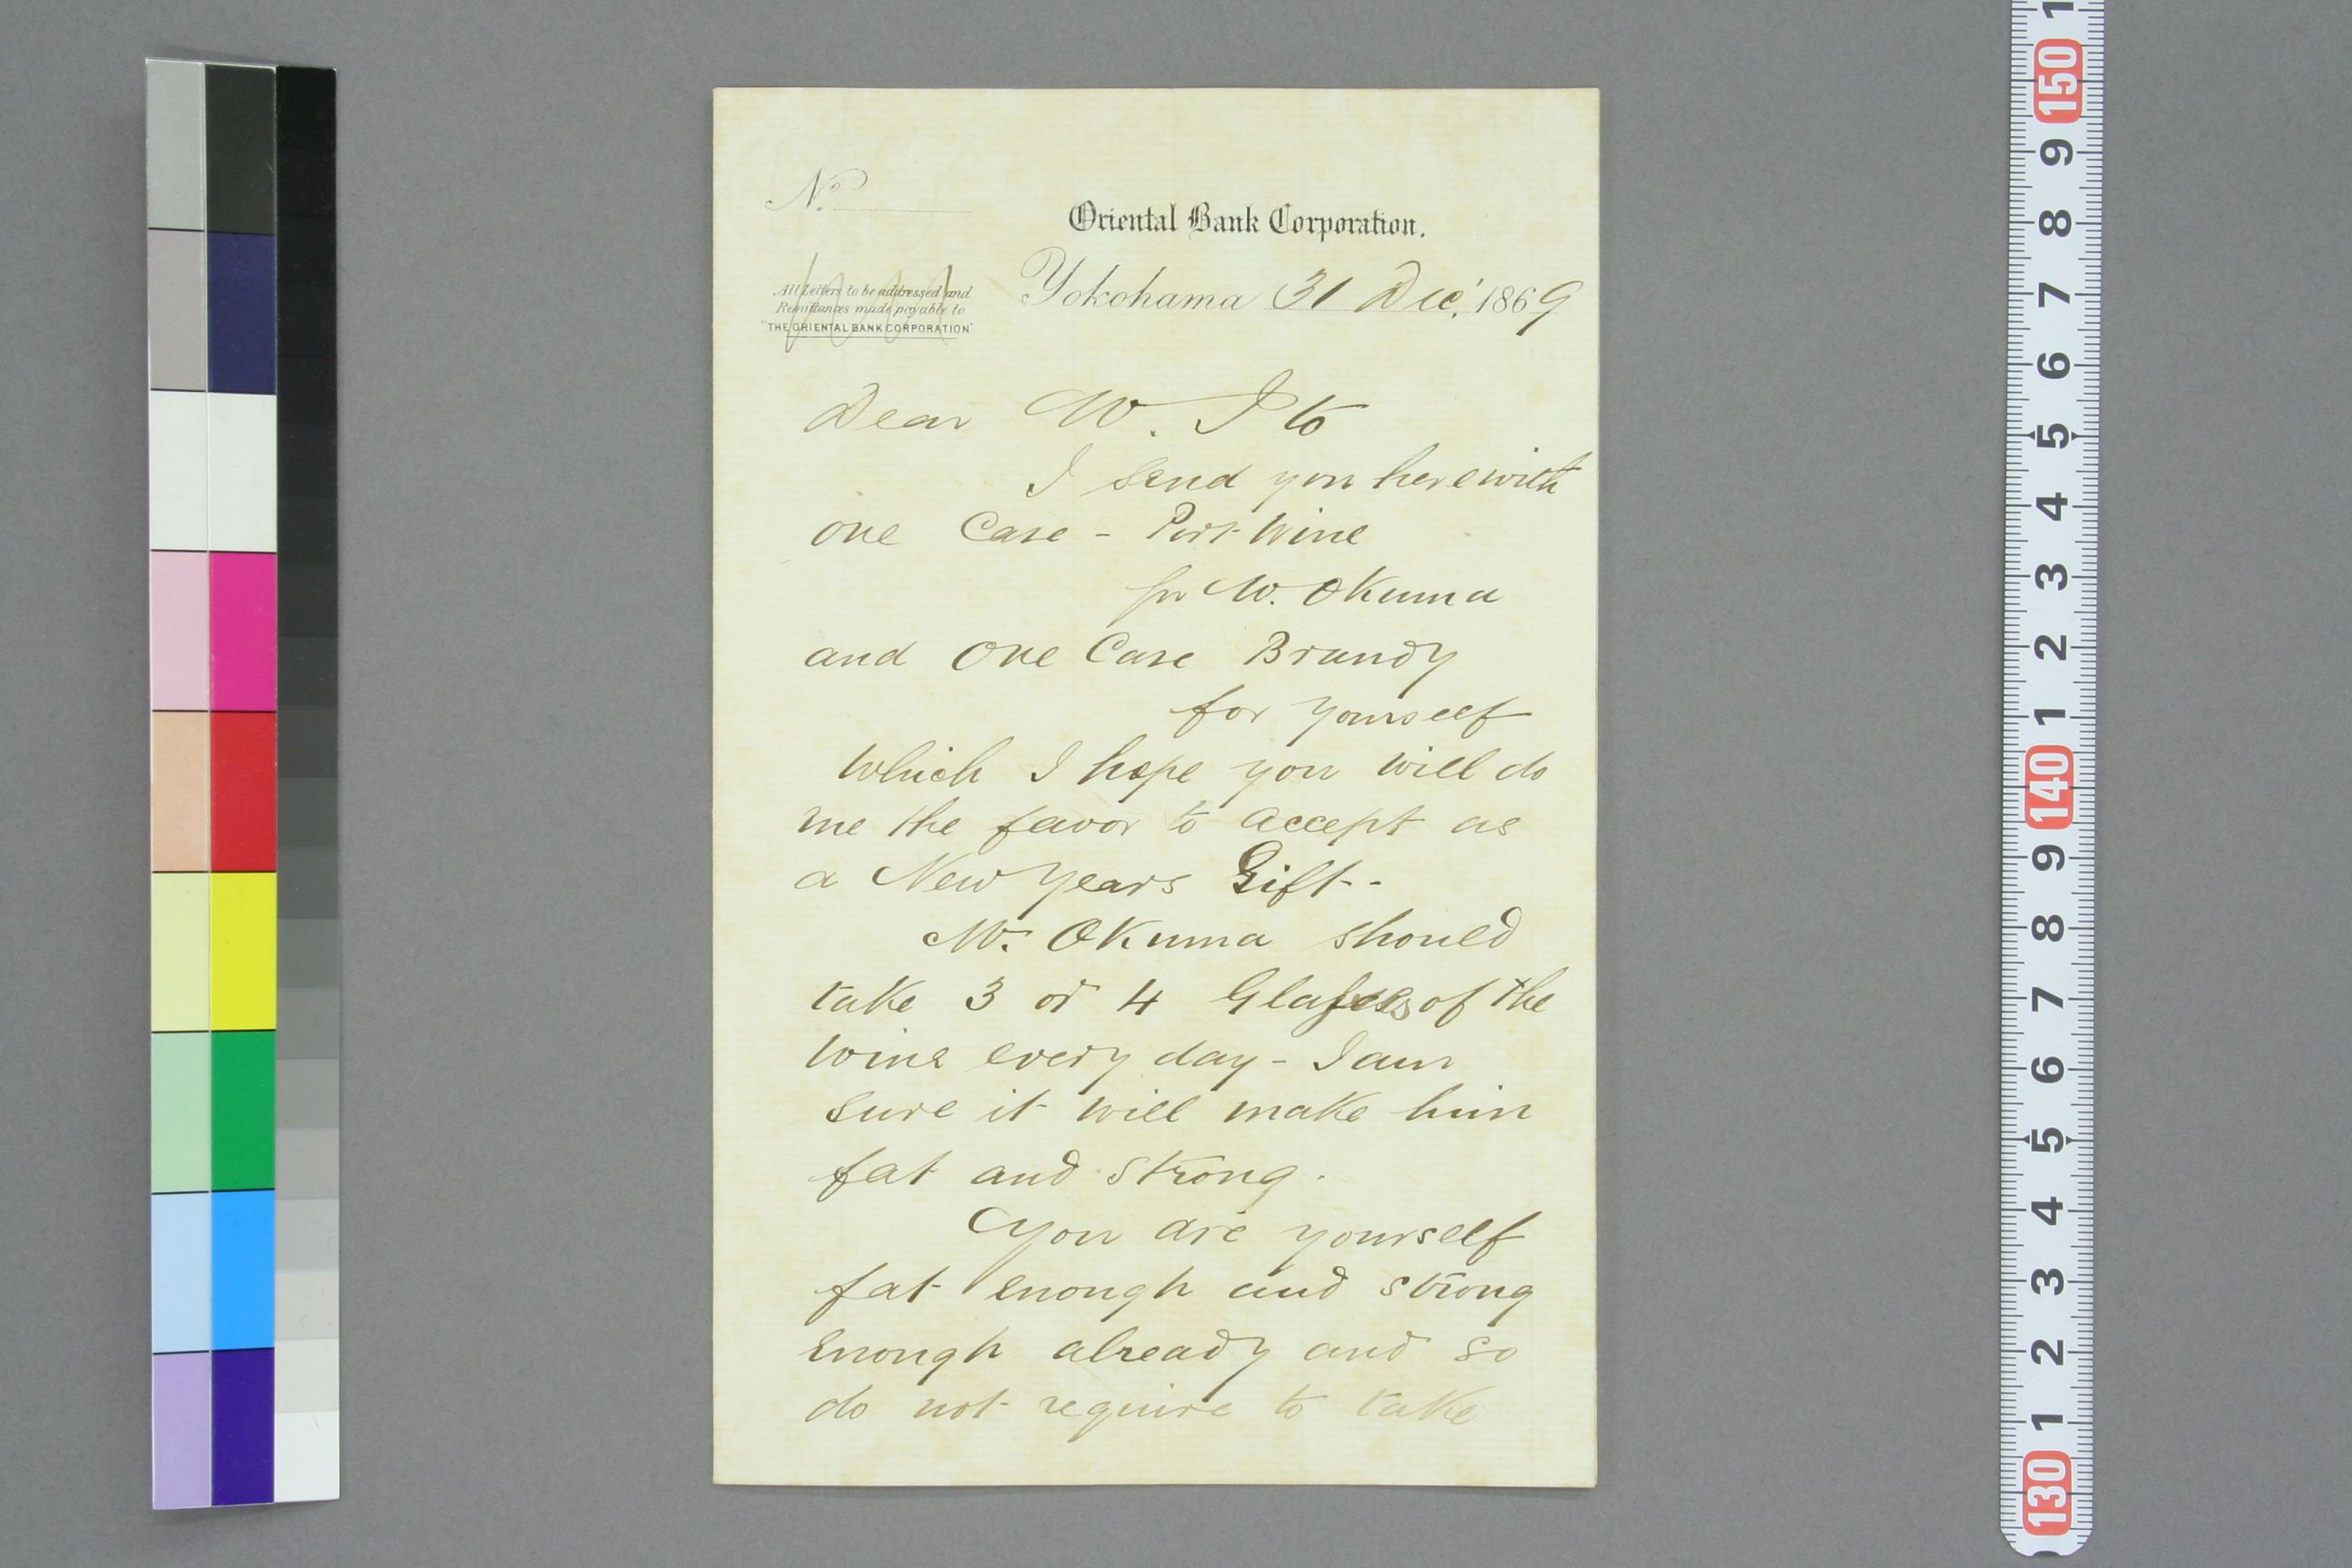 No.
Oriental Bank Corporation.
All Letters to be addressed and
Remittances made payable to
"THE ORIENTAL BANK CORPORATION"
Yokohama 31 Dec. 1869
Dear Mr. Ito
I send you herewith
one Case - Port Wine
for Mr. Okuma
and One Case Brandy
for yourself
which I hope you will do
me the favor to accept as
a New Years Gift -
Mr. Okuma should
take 3 or 4 Glasses of the
wine every day - I am
sure it will make him
fat and strong.
You are yourself
fat enough and strong
enough already and so
do not require to take
1
150
9
8
7
6
5
4
3
2
1
140
9
8
7
6
5
4
3
2
1
130